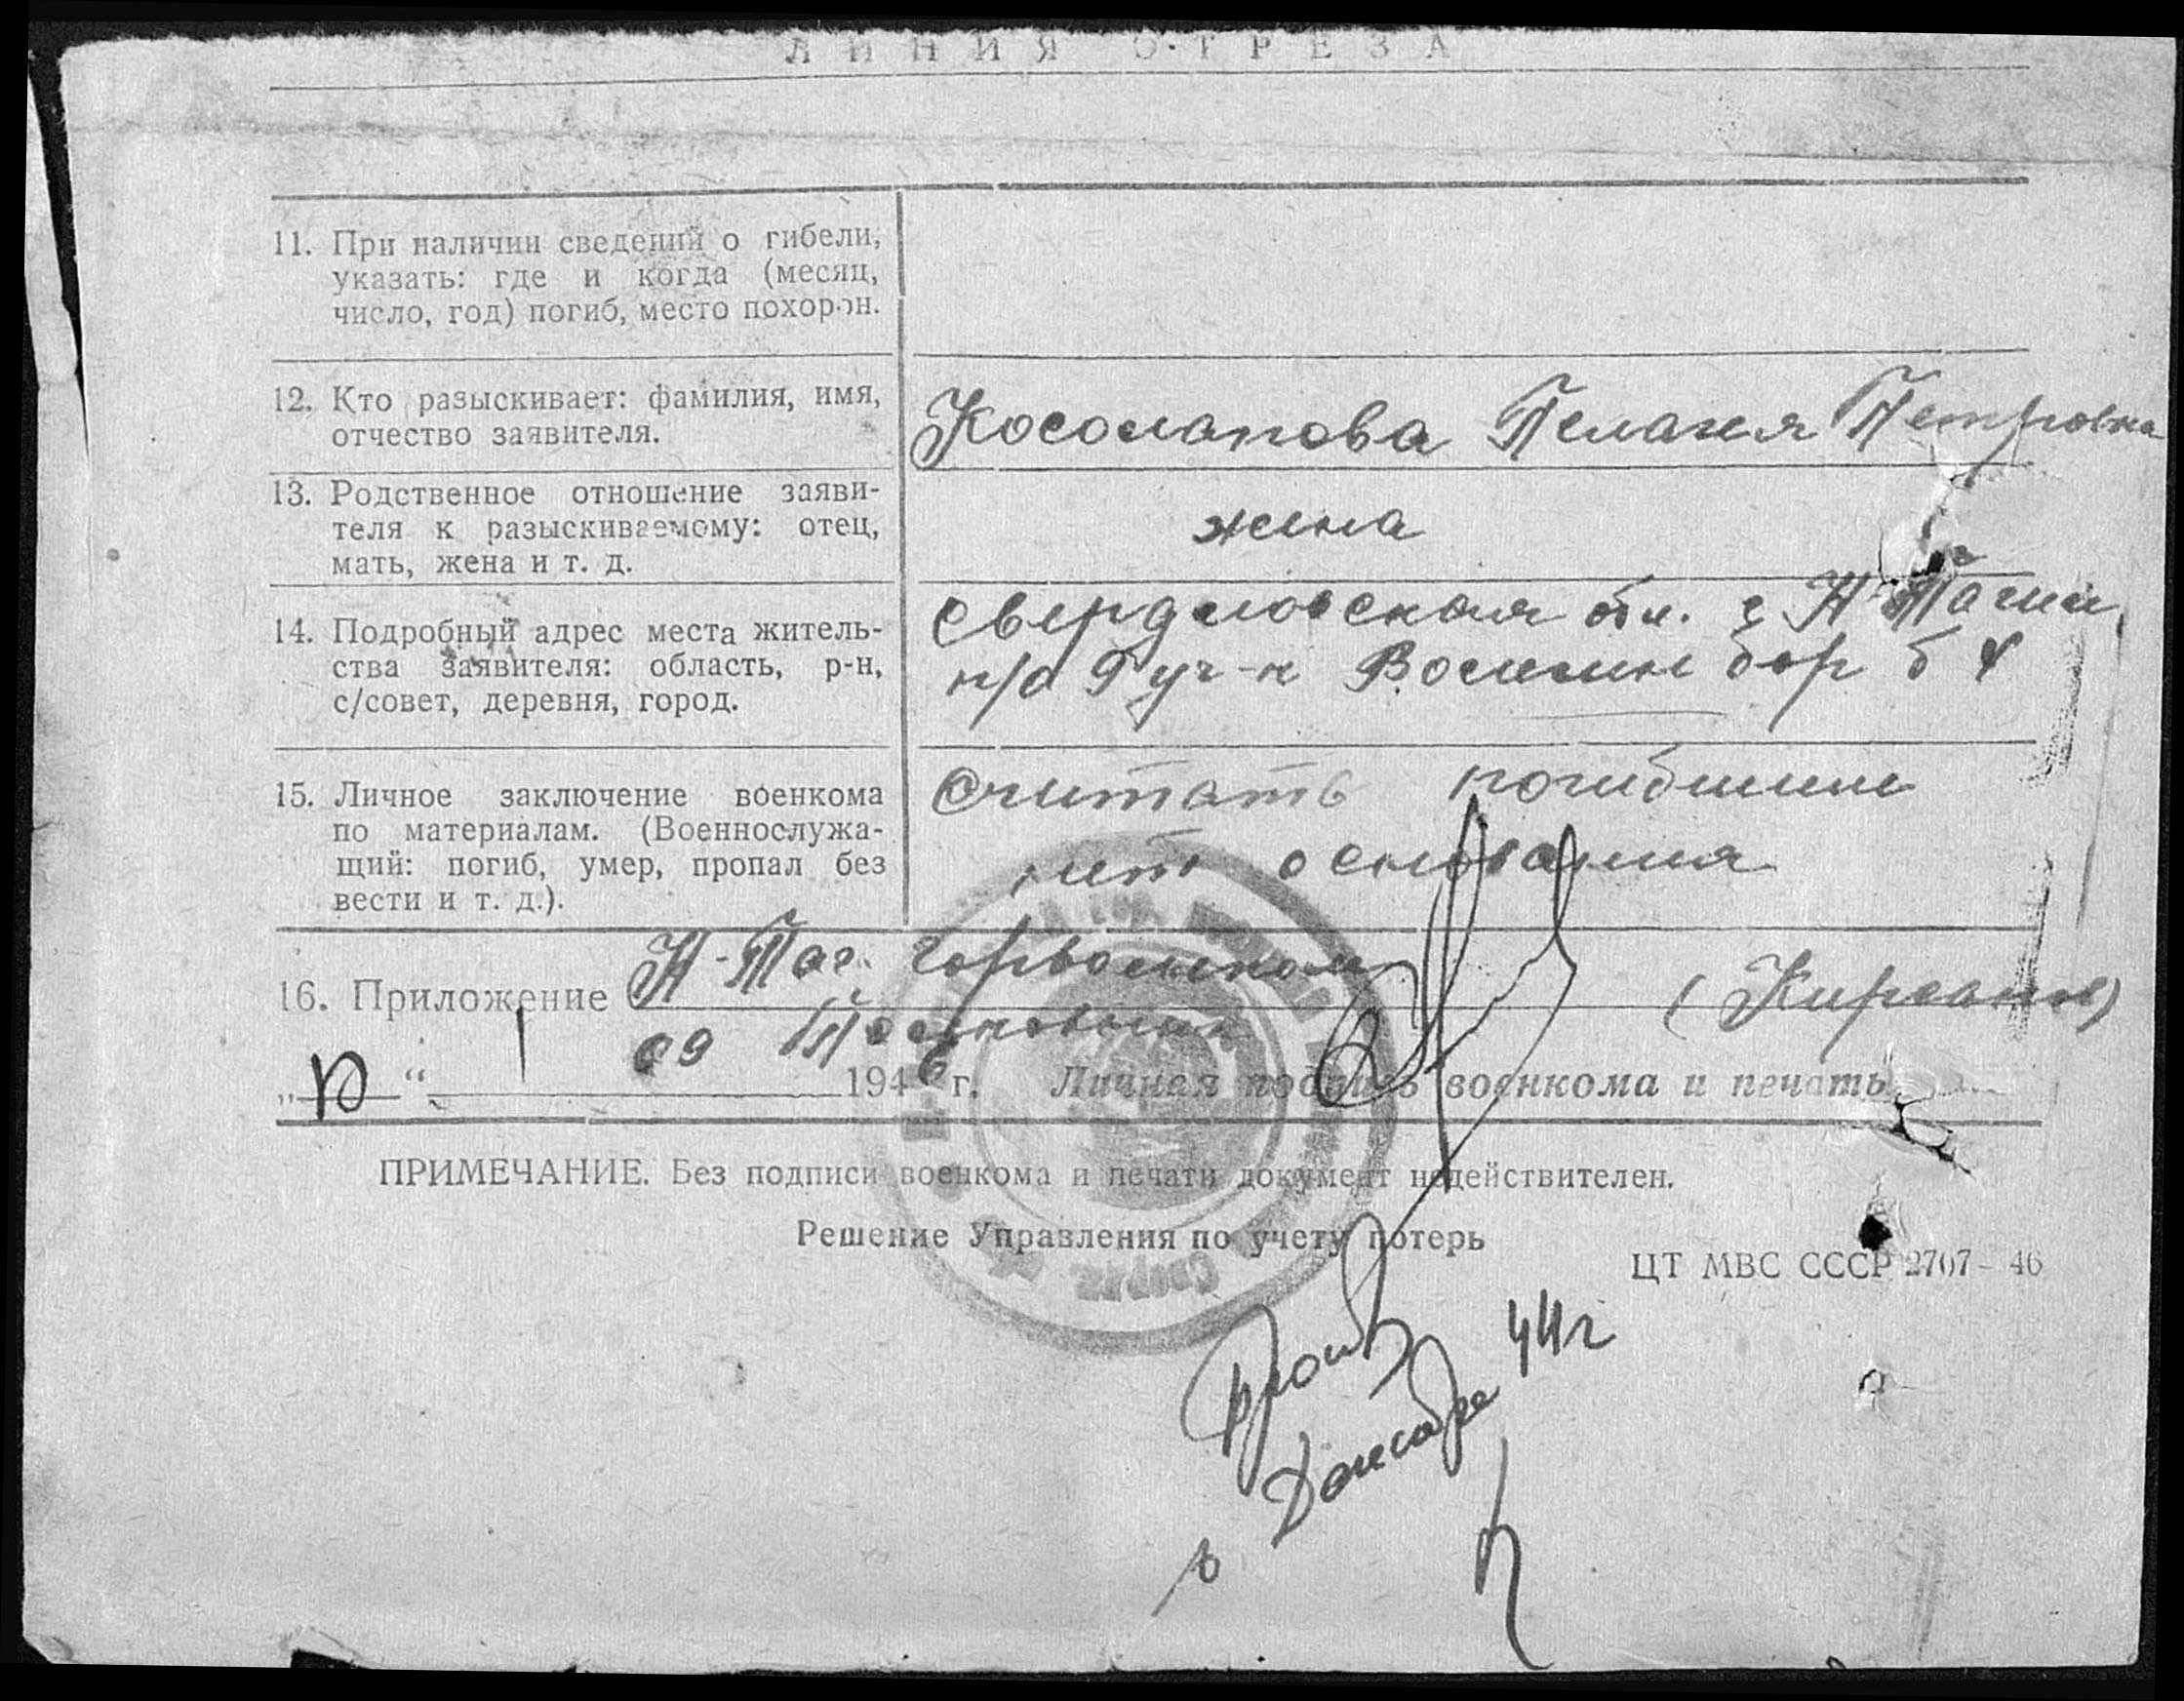 ЛИНИЯ ОТРЕЗА
11. При наличии сведений о гибели,
указать: где и когда (месяц,
число, год) погиб, место похорон.
12. Кто разыскивает: фамилия, имя,
отчество заявителя.
Косолапова Пелагея Петровна
13. Родственное отношение заяви-
теля к разыскиваемому: отец,
мать, жена и т. д.
жена
14. Подробный адрес места житель-
ства заявителя: область, р-н,
с/совет, деревня, город.
Свердловская обл. г Н-Тагил
п/о 9 уч-к бар б
15. Личное заключение военкома
по материалам. (Военнослужа-
щий: погиб, умер, пропал без
вести и т. д.).
Считать погибшим
нет основания
16. Приложение
Н-Таг. Горвоенком
09
„10“ 1946 г. Личная подпись военкома и печать
ПРИМЕЧАНИЕ. Без подписи военкома и печати документ недействителен.
Решение Управления по учету потерь
ЦТ МВС СССР 2707-46
в декабре 44г